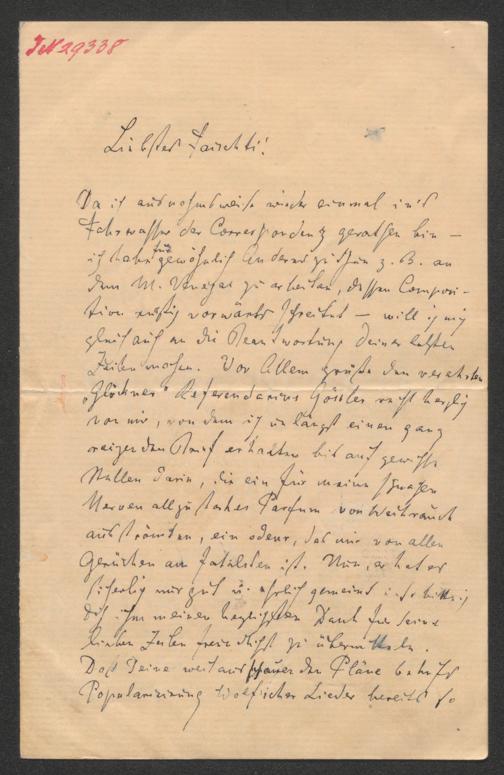 I.N. 29338
Liebster Faischti!
Da ich ausnahmsweise wieder einmal in's
Fahrwasser der Correspondenz gerathen bin –
ich habe für gewöhnlich Anderes zu thun z. B. an
dem M. Venegas zu arbeiten, dessen Composi-
tion rüstig vorwärts schreitet – will ich mich
gleich auch an die Beantwortung Deiner letzten
Zeilen machen. Vor Allem grüße den verehrten
„Glöckner" Referendarius recht herzlich
von mir, von dem ich unlängst einen ganz
reizenden Brief erhalten bis auf gewisse
Stellen darin, die ein für meine schwachen
Nerven allzu starkes Parfum von Weihrauch
ausströmten, ein odeur, das mir von allen
Gerüchen am fatalsten ist. Nun, er hat es
sicherlich nur gut u. ehrlich gemeint u. so bitte ich
Dich ihm meinen herzlichsten Dank für seine
lieben Zeilen freundlichst zu übermitteln.
Daß Deine weitausschauenden Pläne behufs
Popularisirung Wolf'scher Lieder bereits so